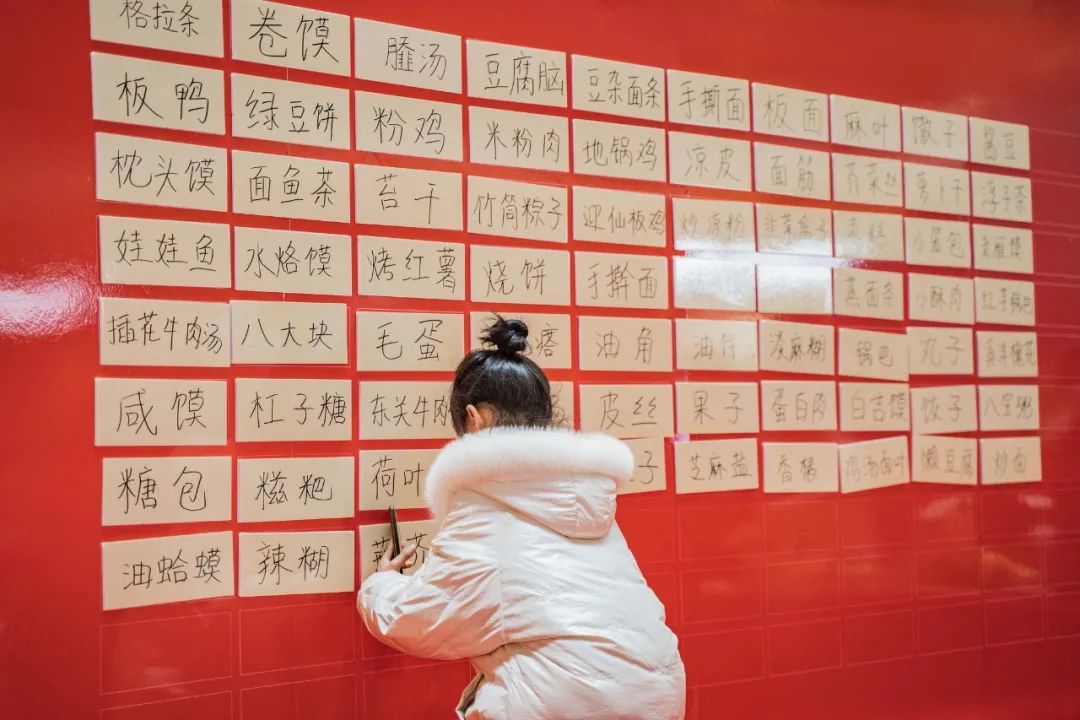 格拉条 卷馍 䐶汤 豆腐脑 豆杂面条 手撕面 板面 麻叶 馓子 酱豆
板鸭 绿豆饼 粉鸡 米粉肉 地锅鸡 凉皮 面筋 芥菜丝 萝卜干 浮子茶
枕头馍 面鱼茶 苔干 竹筒粽子 迎仙板鸡 炒凉粉 韭菜盒子 小笼包 老雁馍
娃娃鱼 水烙馍 烤红薯 烧饼 手擀面 蒸面条 小酥肉 红芋锅巴
插花牛肉汤 八大块 毛蛋 油角 油饼 滚麻糊 锅巴 丸子
咸馍 杠子糖 东关牛肉 皮丝 果子 蛋白肉 白吉馍 饺子 八宝粥
糖包 糍粑 荷叶 子 芝麻盐 香肠 鸡汤面叶 懒豆腐 炒面
油蛤蟆 辣糊 荆芥